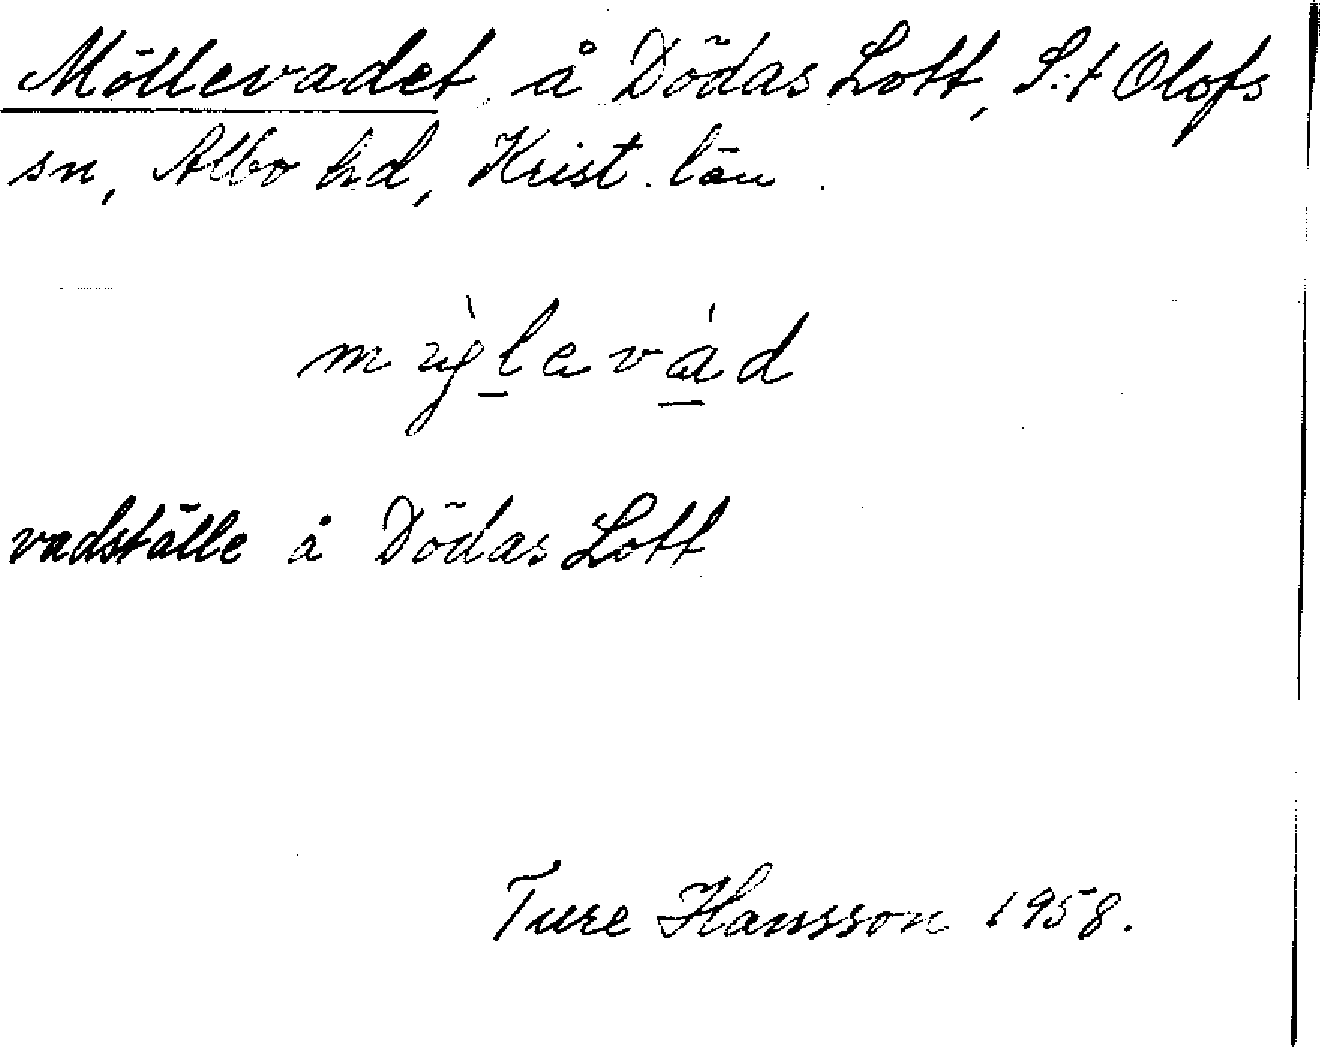 Möllevadet å Dödas Lott, S:t Olofs
sn, Albo hd, Krist. län.
vadställe å Dödas Lott
Ture Hansson 1958.